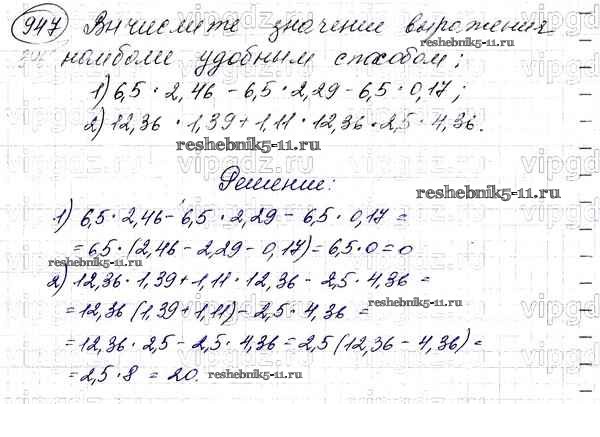 947 Вычислите значение выражения
наиболее удобным способом;
1) 6,5 · 2,46 - 6,5 · 2,29 - 6,5 · 0,17;
2) 12,36 · 1,39 + 1,11 · 12,36 · 2,5 · 4,36.
reshebnik5-11.ru
Решение:
reshebnik5-11.ru
1) 6,5 · 2,46 - 6,5 · 2,29 - 6,5 · 0,17 =
= 6,5 · (2,46 - 2,29 - 0,17) = 6,5 · 0 = 0
reshebnik5-11.ru
2) 12,36 · 1,39 + 1,11 · 12,36 - 2,5 · 4,36 =
= 12,36 (1,39 + 1,11) - 2,5 · 4,36 =
reshebnik5-11.ru
= 12,36 · 2,5 - 2,5 · 4,36 = 2,5 (12,36 - 4,36) =
= 2,5 · 8 = 20.
reshebnik5-11.ru